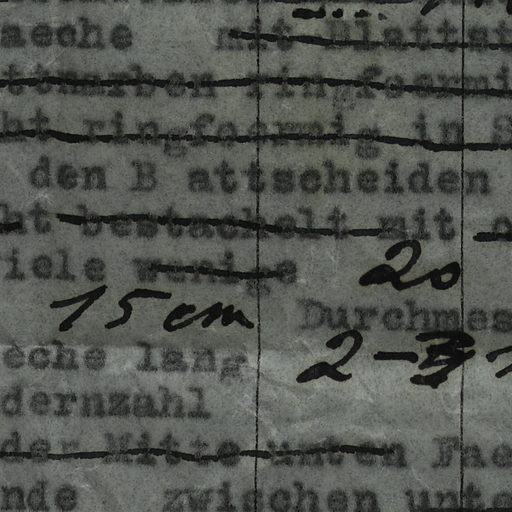 aeche mit Blattst
tnarben ringfoermi
ht ringfoermig in S
den B attscheiden
ht bestachelt mit o
iele wenige 20
15 cm Durchmes
eche lang 2-3
dernzahl
der Mitte unten Fae
nde zwischen unte